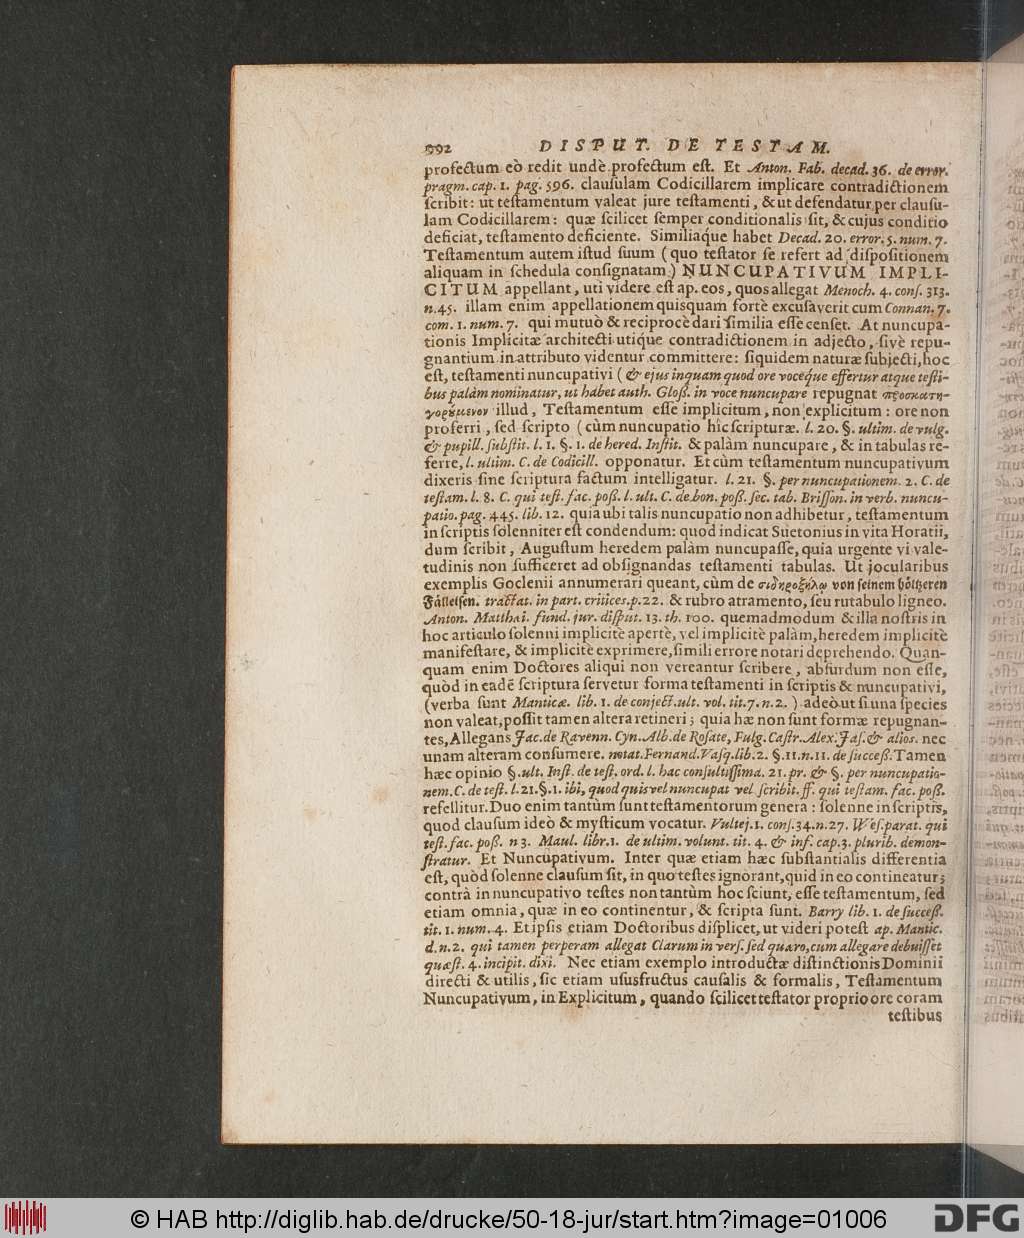 992 DISPUT. DE TESTAM.
profectum eò redit undè profectum est. Et Anton. Fab. decad. 36. de error.
pragm. cap. 1. pag. 596. clausulam Codicillarem implicare contradictionem
scribit: ut testamentum valeat jure testamenti, & ut defendatur per clausu-
lam Codicillarem: quæ scilicet semper conditionalis sit, & cujus conditio
deficiat, testamento deficiente. Similiaque habet Decad. 20. error. 5. num. 7.
Testamentum autem istud suum (quo testator se refert ad dispositionem
aliquam in schedula consignatam) NUNCUPATIVUM IMPLI-
CITUM appellant, uti videre est ap. eos, quos allegat Menoch. 4. cons. 313.
n. 45. illam enim appellationem quisquam fortè excusaverit cum Connan. 7.
com. 1. num. 7. qui mutuò & reciprocè dari similia esse censet. At nuncupa-
tionis Implicitæ architecti utique contradictionem in adjecto, sivè repu-
gnantium in attributo videntur committere: siquidem naturæ subjecti, hoc
est, testamenti nuncupativi (& ejus inquam quod ore vocéque effertur atque testi-
bus palàm nominatur, ut habet auth. Gloß. in voce nuncupare repugnat προσκατη-
γορούμενον illud, Testamentum esse implicitum, non explicitum: ore non
proferri, sed scripto (cùm nuncupatio hîc scripturæ. l. 20. §. ultim. de vulg.
& pupill. substit. l. 1. §. 1. de hered. Instit. & palàm nuncupare, & in tabulas re-
ferre, l. ultim. C. de Codicill. opponatur. Et cùm testamentum nuncupativum
dixeris sine scriptura factum intelligatur. l. 21. §. per nuncupationem. 2. C. de
testam. l. 8. C. qui test. fac. poß. l. ult. C. de bon. poß. sec. tab. Brisson. in verb. nuncu-
patio. pag. 445. lib. 12. quia ubi talis nuncupatio non adhibetur, testamentum
in scriptis solenniter est condendum: quod indicat Suetonius in vita Horatii,
dum scribit, Augustum heredem palàm nuncupasse, quia urgente vi vale-
tudinis non sufficeret ad obsignandas testamenti tabulas. Ut jocularibus
exemplis Goclenii annumerari queant, cùm de σιδηροξήλῳ von seinem höltzeren
Fälleisen. tractat. in part. critices. p. 22. & rubro atramento, seu rutabulo ligneo.
Anton. Matthæi. fund. jur. disput. 13. th. 100. quemadmodum & illa nostris in
hoc articulo solenni implicitè apertè, vel implicitè palàm, heredem implicitè
manifestare, & implicitè exprimere, simili errore notari deprehendo. Quan-
quam enim Doctores aliqui non vereantur scribere, absurdum non esse,
quòd in eadē scriptura servetur forma testamenti in scriptis & nuncupativi,
(verba sunt Manticæ. lib. 1. de conject. ult. vol. tit. 7. n. 2.) adeò ut si una species
non valeat, possit tamen altera retineri; quia hæ non sunt formæ repugnan-
tes, Allegans Jac. de Ravenn. Cyn. Alb. de Rosate, Fulg. Castr. Alex. Jas. & alios. nec
unam alteram consumere. notat. Fernand. Vasq. lib. 2. §. 11. n. 11. de success. Tamen
hæc opinio §. ult. Inst. de test. ord. l. hac consultissima. 21. pr. & §. per nuncupatio-
nem. C. de test. l. 21. §. 1. ibi, quod quis vel nuncupat vel scribit. ff. qui testam. fac. poß.
refellitur. Duo enim tantùm sunt testamentorum genera: solenne in scriptis,
quod clausum ideò & mysticum vocatur. Vultej. 1. cons. 34. n. 27. Wes. parat. qui
test. fac. poß. n 3. Maul. libr. 1. de ultim. volunt. tit. 4. & inf. cap. 3. plurib. demon-
stratur. Et Nuncupativum. Inter quæ etiam hæc substantialis differentia
est, quòd solenne clausum sit, in quo testes ignorant, quid in eo contineatur;
contrà in nuncupativo testes non tantùm hoc sciunt, esse testamentum, sed
etiam omnia, quæ in eo continentur, & scripta sunt. Barry lib. 1. de success.
tit. 1. num. 4. Et ipsis etiam Doctoribus displicet, ut videri potest ap. Mantic.
d. n. 2. qui tamen perperam allegat Clarum in vers. sed quæro, cum allegare debuisset
quæst. 4. incipit. dixi. Nec etiam exemplo introductæ distinctionis Dominii
directi & utilis, sic etiam ususfructus causalis & formalis, Testamentum
Nuncupativum, in Explicitum, quando scilicet testator proprio ore coram
testibus
© HAB http://diglib.hab.de/drucke/50-18-jur/start.htm?image=01006
DFG